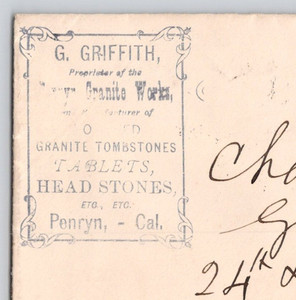 G. GRIFFITH,
Proprietor of the
Granite Works,
of
GRANITE TOMBSTONES
TABLETS,
HEAD STONES,
ETC., ETC.
Penryn, - Cal.
Cha
G
24th &